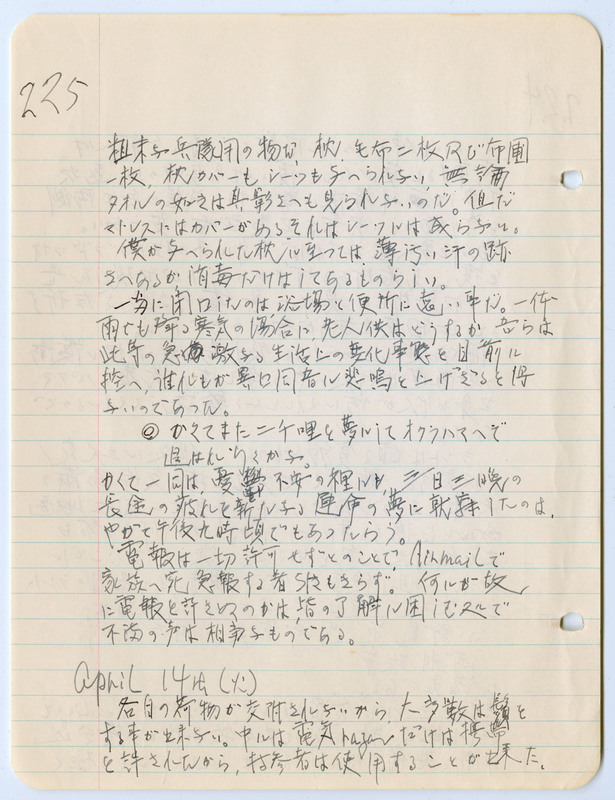 225
粗末な兵隊用の物な、枕、毛布二枚及び布団
一枚、枕カバーもシーツも与へられない、無論
タオルの如きは其影さへも見られないのだ。但だ
マトレスにはカバーがあるそれはシーツには成らない。
僕が与へられた枕に至っては、薄汚い汗の跡
さへあるが消毒だけはしてあるものらしい。
一番に閉口したのは浴場と便所に遠い事だ。一体
雨でも降る寒気の場合に、老人供はどうするか 吾らは
此等の急激なる生活上の変化事態を目前に
控へ、誰れもが異口同音に悲鳴を上げざるを得
ないのであった。
◎ かくてまた二千哩を夢にしてオクラハマへぞ
追はれ行くかな。
かくて一同は、憂鬱 不安の裡にも 三日三晩の
長途の疲れを新たなる運命の夢に乾したのは、
やがて午後九時頃でもあったらう。
電報は一切許可せずとのことで、Airmailで
家族へ宛 急報する者すくなからず。何にが故
に電報を許さぬのかは、皆の了解に困しむ処で
不満の声は相当なものである。
April 14th (火)
各自の荷物が交附されないから、大多数は鬚を
する事が出来ない。中には電気razorだけは携帯
を許されたから、持参者は使用することが出来た。